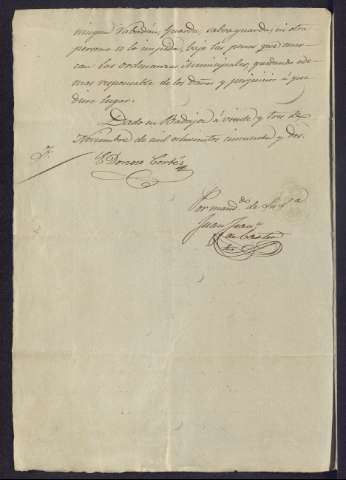 ningun Vabadan, Guarda, salvaguarda, ni otra
persona se lo impida, bajo las penas que mar-
can las ordenanzas municipales, quedando ade-
mas responsable de los daños y perjuicios á que
diere lugar.
Dado en Badajoz á veinte y tres de
Noviembre de mil ochocientos cincuenta y dos.
P. Donoso Cortés
Por mand.º de Su S.ª
Juan